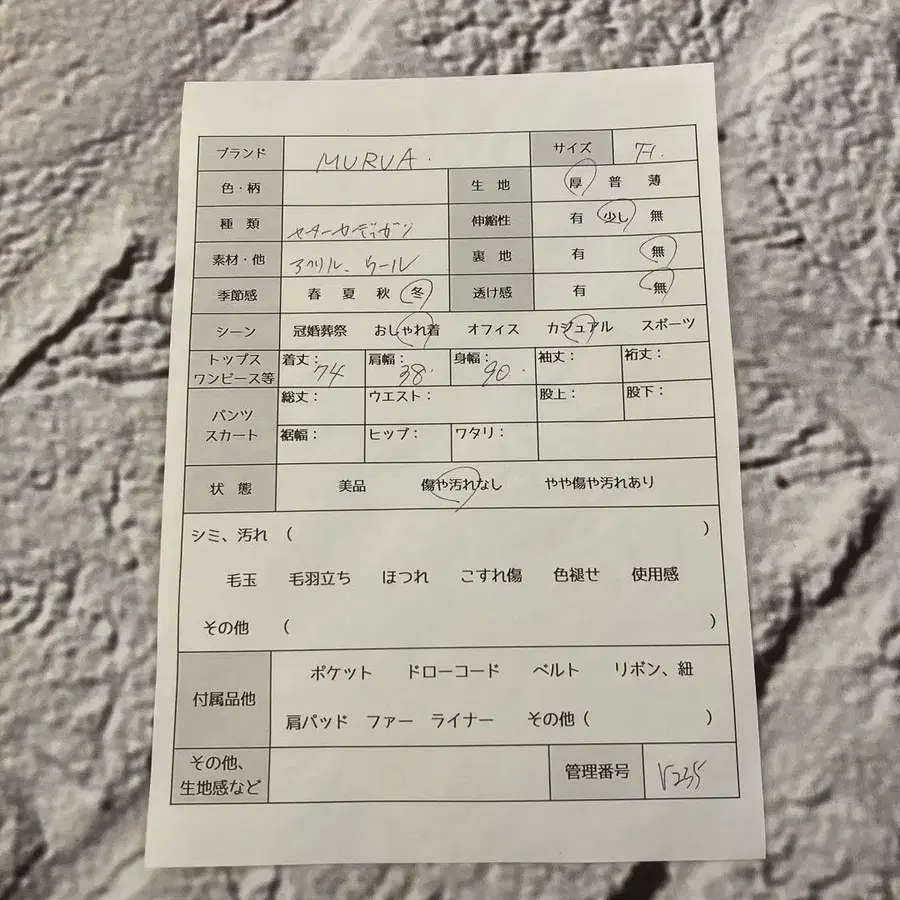 ブランド MURUA. サイズ
色・柄 生地 厚 普 薄
種類 セーターカーディガン 伸縮性 有 少し 無
素材・他 アクリル、ウール 裏地 有 無
季節感 春 夏 秋 冬 透け感 有 無
シーン 冠婚葬祭 おしゃれ着 オフィス カジュアル スポーツ
トップス ワンピース等 着丈：74 肩幅：38. 身幅：90. 袖丈： 裄丈：
パンツ スカート 総丈： ウエスト： 股上： 股下：
裾幅： ヒップ： ワタリ：
状態 美品 傷や汚れなし やや傷や汚れあり
シミ、汚れ （ ）
毛玉 毛羽立ち ほつれ こすれ傷 色褪せ 使用感
その他 （ ）
付属品他 ポケット ドローコード ベルト リボン、紐
肩パッド ファー ライナー その他（ ）
その他、
生地感など 管理番号 V235